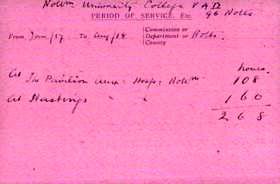 Nottm University College VAD
96 Notts
PERIOD OF SERVICE, Etc.
From Jan/17 to Aug/18 Commission or Department or County Notts.
hours.
At The Pavilion Aux: Hosp: Nottm 108
At Hastings " " 160
268